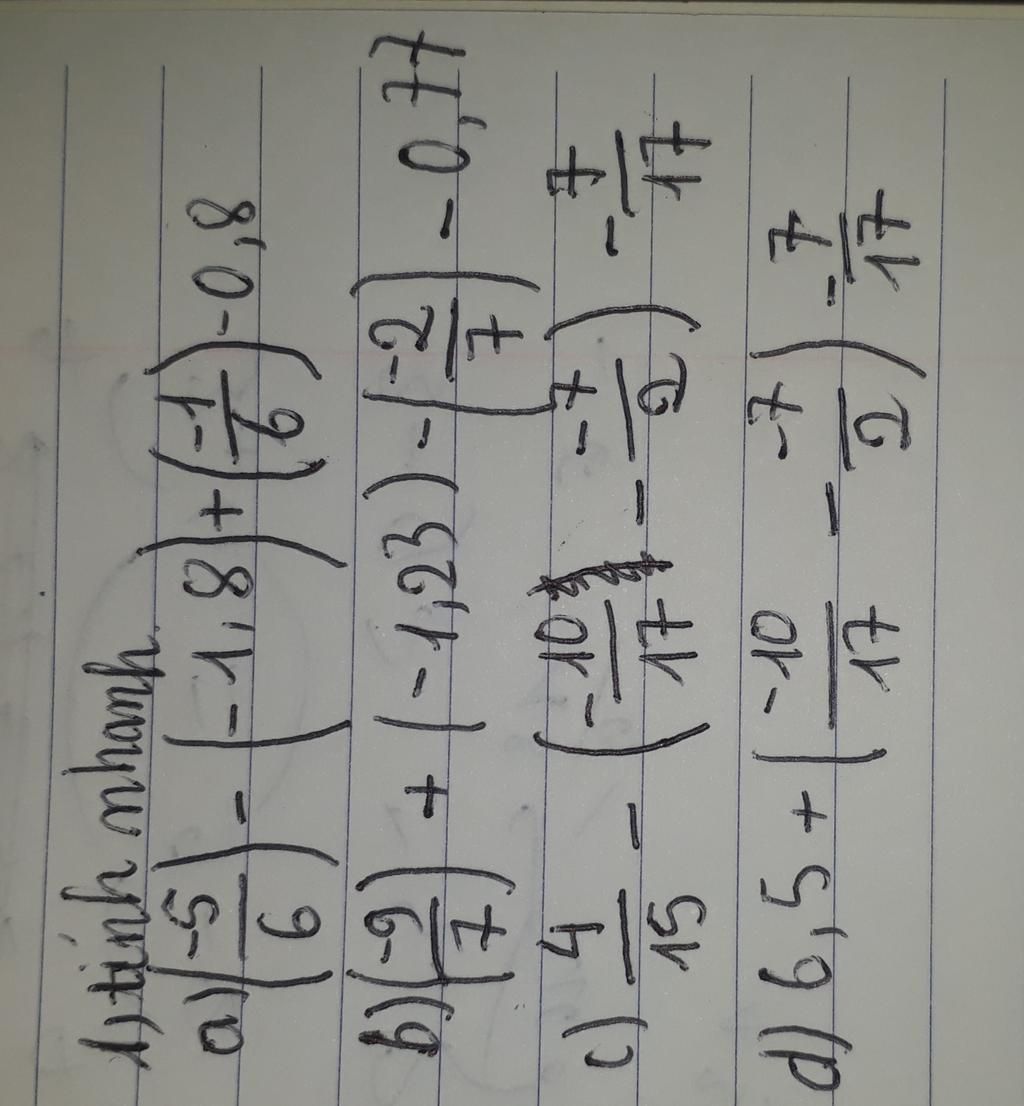 1, tính nhanh
a) (-5/6) - (-1,8) + (-1/6) - 0,8
b) (-9/7) + (-1,23) - (-2/7) - 0,77
c) 4/15 - (-10/17 - -7/2) - 7/17
d) 6,5 + (-10/17 - -7/2) - 7/17